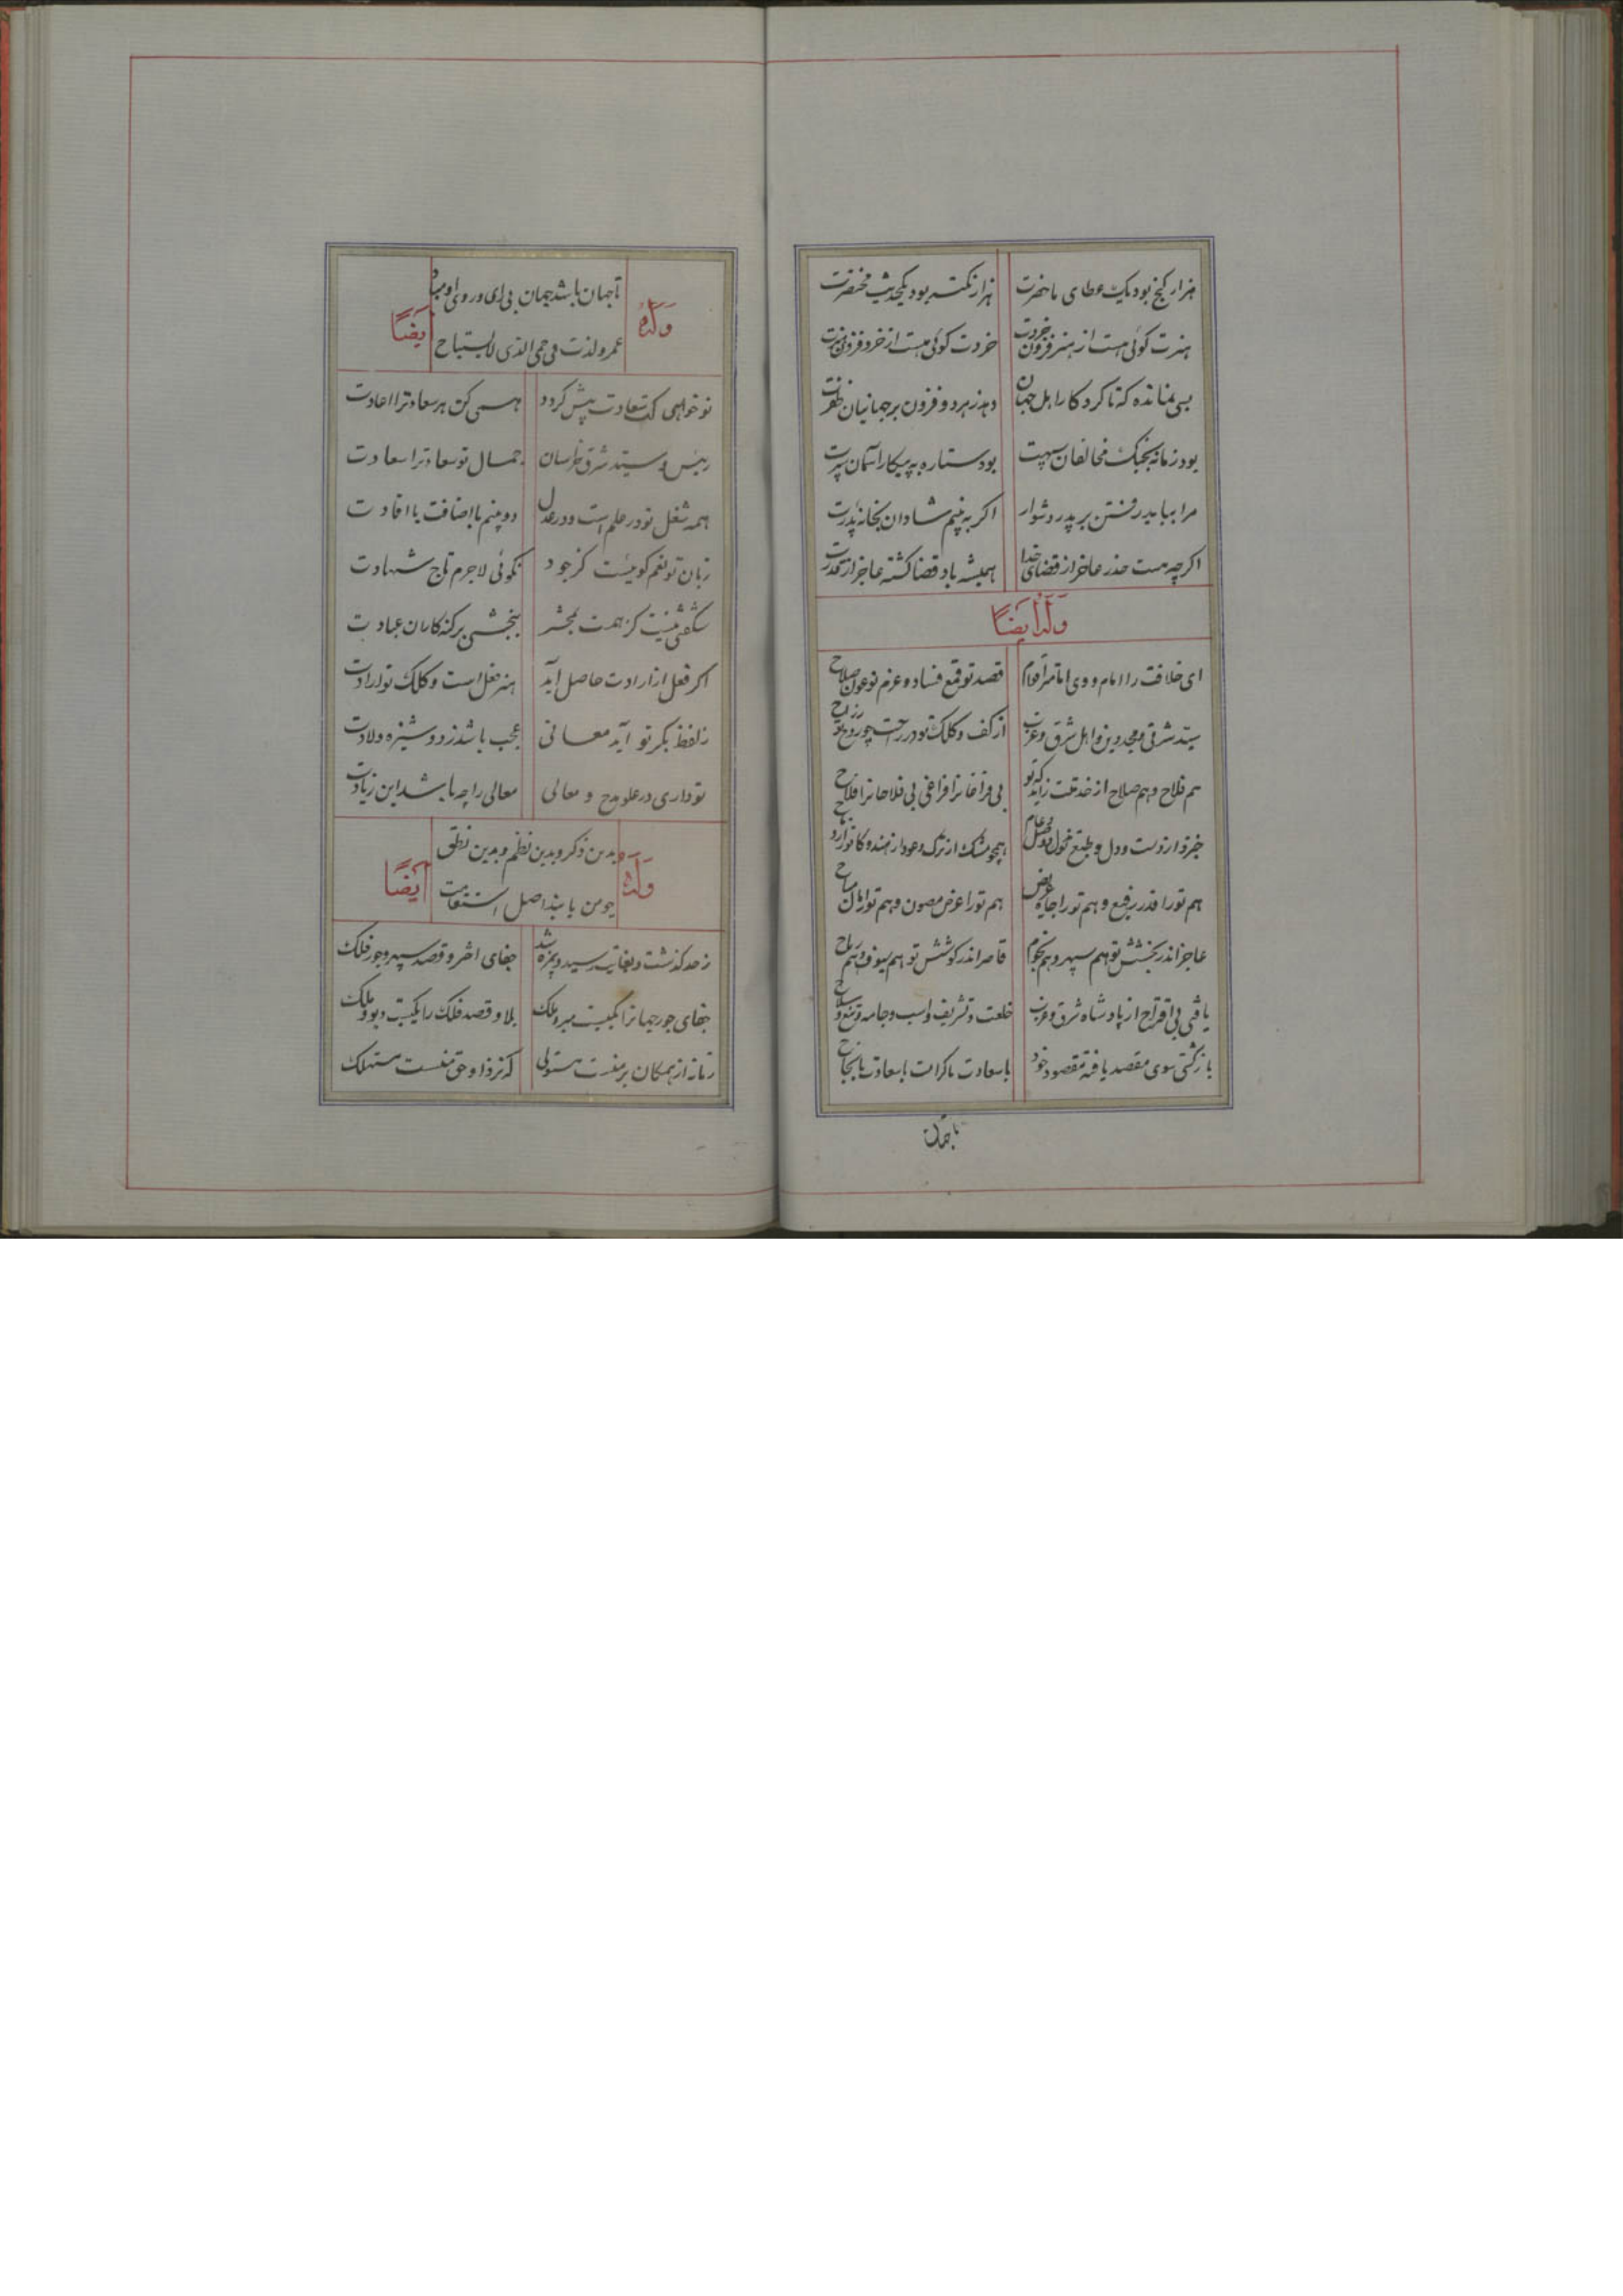 هزار گنج بود یک عطای ماحضرت هزار نکته بود یک حدیث مختصرت
هنرت گوئی هست از هنر فزون خردت خردت گوئی هست از خرد فزون هنرت
بسی نمانده که تا کردگار اهل جهان دهد زهر دو فزون بر جهانیان ظفرت
بود زمانه بجنگ مخالفان سپهت بود ستاره به پیکار آسمان سپرت
مرا بباید رفتن بر پدر دشوار اگر به بینم شادان بخانه پدرت
اگرچه هست حذر عاجز از قضای خدا همیشه باد قضا گشته عاجز از قدرت
وله ایضا
ای خلافت را امام و وی امامت را قوام قصد تو قمع فساد و عزم تو عون صلاح
سید شرقی و مجد دین و اهل شرق و غرب از کف و کلک تو در راحت چو روح
هم فلاح و هم صلاح از خدمتت زاید که تو بی فراغانرا فراغی بی فلاحانرا فلاح
خیزد از دست و دل و طبع تو همچو مشک از ترک و عود از هند و کافور از
هم تو را قدر رفیع و هم تو را جاه عریض هم تو را عرض مصون و هم تو را مال مباح
عاجز اندر بخشش تو هم سپهر و هم نجوم قاصر اندر کوشش تو هم سیوف و هم رماح
یافتی بی اقتراح از پادشاه شرق و غرب خلعت و تشریف و اسب و جامه و تیغ و سلاح
بازگشتی سوی مقصد یافته مقصود خود با سعادت با کرامت با سعادت با نجاح
تا جهان
تا جهان باشد جهان بی رای و روی او مباد
وله ایضا
عمر و لذت فی حمی الذی لا یستباح
تو خواهی کت سعادت پیش گردد همی کن هر سعادترا اعادت
رئیس و سید شرق خراسان جمال تو سعادترا سعادت
همه شغل تو در علم است و در عدل دو بینم با اضافت با افادت
زبان تو نعم گویست کز جود نگوئی لا جرم تاج شهادت
شگفتی نیست کز همت بمحشر ببخشی بر گنه کاران عبادت
اگر فعل از ارادت حاصل آید هنر فعل است و کلک تو ارادت
ز لفظ بکر تو آید معانی عجب باشد ز دوشیزه ولادت
تو داری در علو مدح و معالی معالی را چه باشد این زیادت
بدین ذکر و بدین نظم و بدین نطق
وله ایضا
چو من باید اصل استقامت
ز حد گذشت و بغایت رسید و بیمزه شد جفای اختر و قصد سپهر و جور فلک
جفای جور جهانرا بلا و قصد فلک را
زمانه از همگان بر منست مستولی که نزد او حق منست مستهلک